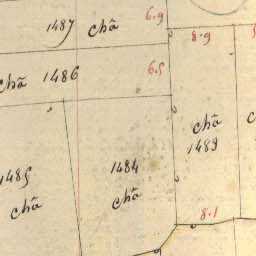 1487 chā 6.9
8.9
chā 1486 6.5
chā
1489
1485
chā
1484
chā
8.1